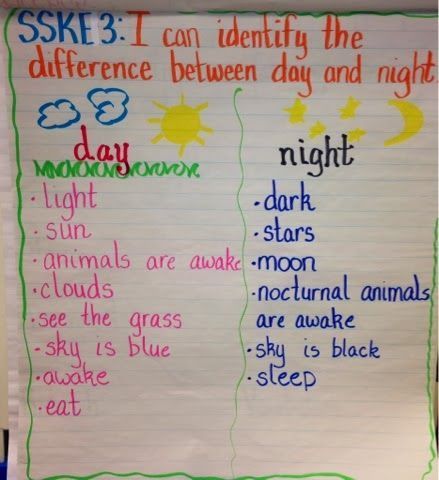 SSKE3: I can identify the
difference between day and night
day
· light
· sun
· animals are awake
· clouds
· see the grass
· sky is blue
· awake
· eat
night
· dark
· stars
· moon
· nocturnal animals
are awake
· sky is black
· sleep